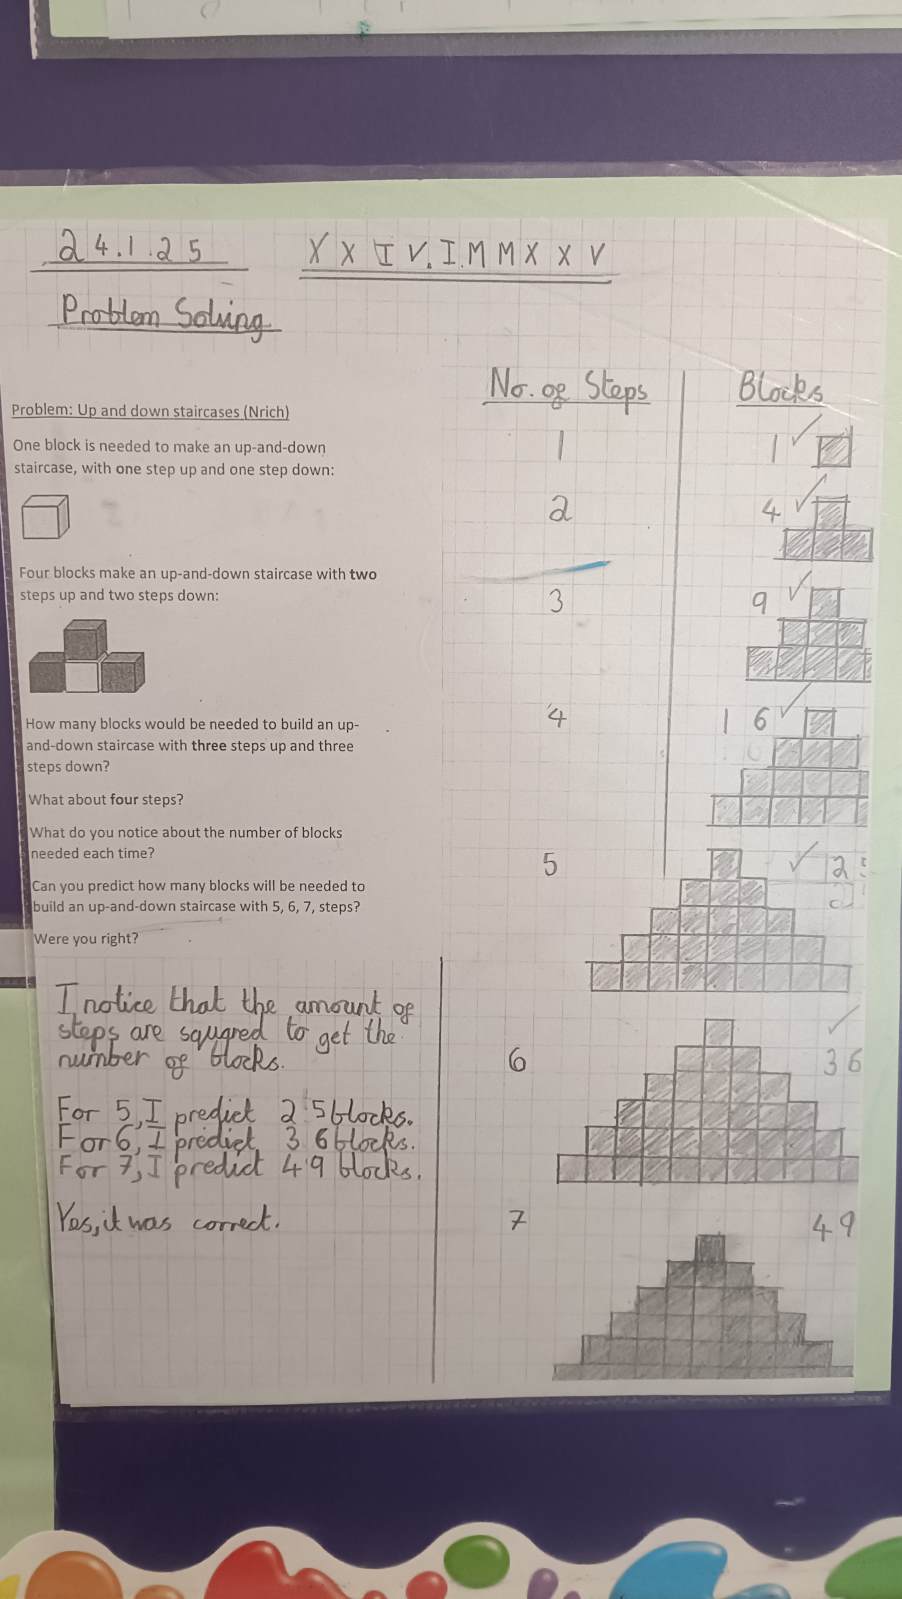 24.1.25 XXIV.I.MMXXV
Problem Solving
Problem: Up and down staircases (Nrich)
One block is needed to make an up-and-down
staircase, with one step up and one step down:
Four blocks make an up-and-down staircase with two
steps up and two steps down:
How many blocks would be needed to build an up-
and-down staircase with three steps up and three
steps down?
What about four steps?
What do you notice about the number of blocks
needed each time?
Can you predict how many blocks will be needed to
build an up-and-down staircase with 5, 6, 7, steps?
Were you right?
I notice that the amount of
steps are squared to get the
number of blocks.
For 5, I predict 25 blocks.
For 6, I predict 36 blocks.
For 7, I predict 49 blocks.
Yes, it was correct.
No. of Steps Blocks
1 1
2 4
3 9
4 16
5 25
6 36
7 49